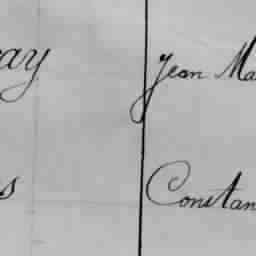 ay Jean Ma
s Constan